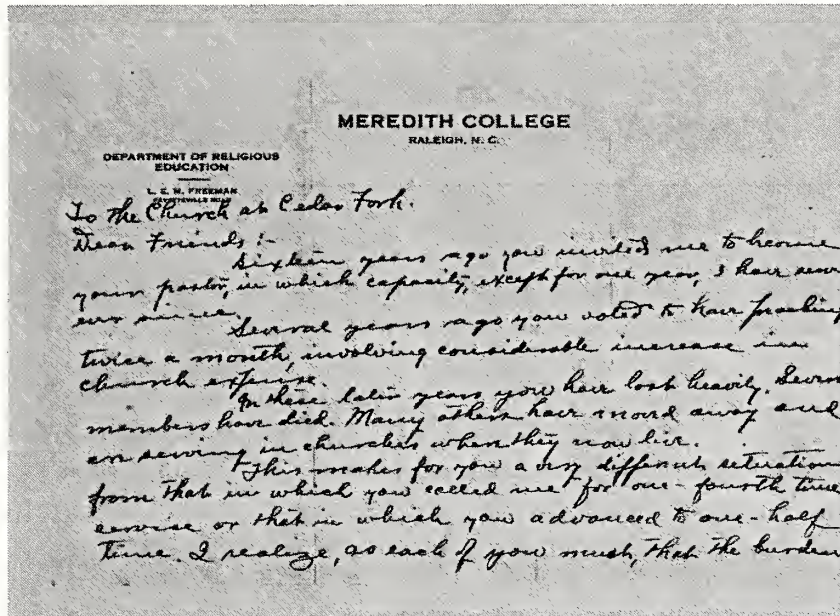 MEREDITH COLLEGE
RALEIGH, N. C.
DEPARTMENT OF RELIGIOUS
EDUCATION
L. E. M. FREEMAN
To the Church at Cedar Fork.
Dear Friends:-
Sixteen years ago you invited me to become
your pastor, in which capacity, except for one year, I have serv
ever since.
Several years ago you voted to have preaching
twice a month, involving considerable increase in
church expense.
In these later years you have lost heavily. Seven
members have died. Many others have moved away and
are serving in churches where they now live.
This makes for you a very different situation
from that in which you called me for one-fourth time
service or that in which you advanced to one-half
time. I realize, as each of you must, that the burden